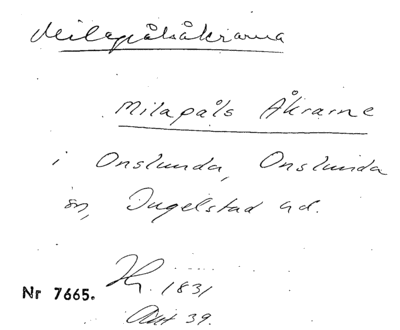 Milapålsåkrarna
Milapåls Åkrarne
i Onslunda, Onslunda
sn, Ingelstad hd.
Hr. 1831
Nr 7665.
Akt 39.